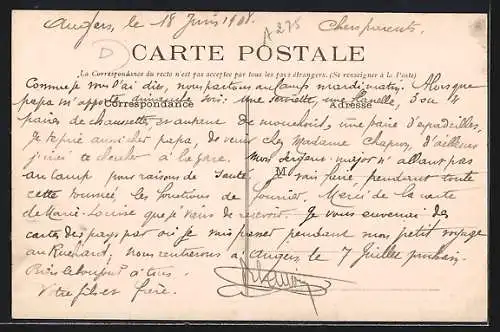 Angers, le 18 Juin 1908. A 278 Chers parents.
D
CARTE POSTALE
La Correspondance du recto n'est pas acceptée par tous les pays étrangers. (Se renseigner à la Poste)
Comme je vous l'ai dit, nous partons au camp mardi matin. Alors que
papa m'apporte dimanche soir. une serviette, une flanelle, 3 ou 4
Correspondance Adresse
paires de chaussettes, de mouchoirs, une paire d'espadrilles,
Je te prie mon cher papa, de venir chez Madame Chapron, d'ailleurs
j'irai te chercher à la gare. Mon sergent-major n'allant pas
M
au camp pour raisons de santé, je vais faire pendant toute
cette tournée les fonctions de fourrier. Merci de la carte
de Marie-Louise que je viens de recevoir. Je vous enverrai des
cartes des pays par où je vais passer pendant mon petit voyage
au Ruchard; nous rentrerons à Angers le 7 Juillet prochain.
à tous.
Votre fils et frère.